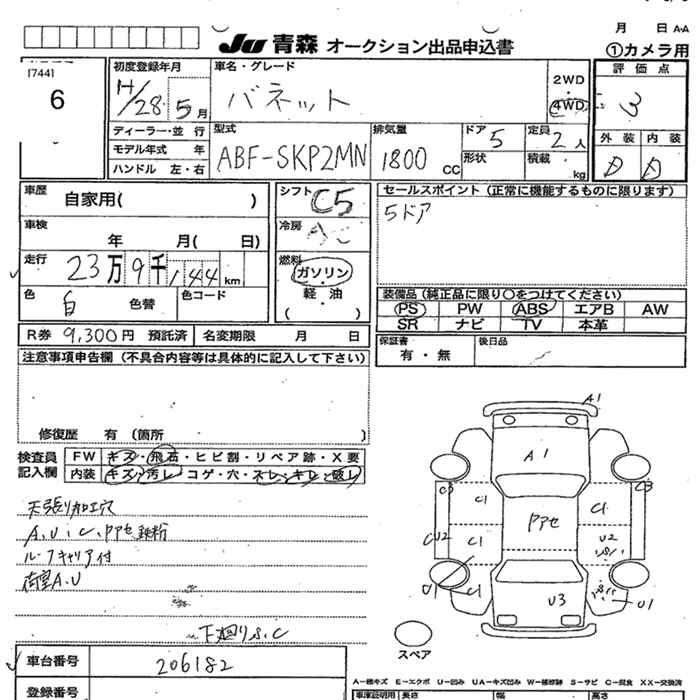 月　日 A-A
JU 青森 オークション出品申込書
①カメラ用
[7441
6
初度登録年月
H/28 5月
車名・グレード
バネット
2WD
・
4WD
評価点
3
ディーラー・並行
モデル年式　年
ハンドル　左・右
型式
ABF-SKP2MN
排気量
1800 CC
ドア 5
形状
定員 2人
積載 kg
外装 内装
D D
車歴
自家用(　　)
シフト C5
セールスポイント (正常に機能するものに限ります)
5ドア
車検
年　月(　日)
冷房
AC
走行
23万9千144km
燃料
ガソリン
・
軽油
(　　)
色 白 色替
色コード
装備品 (純正品に限り〇をつけてください)
PS PW ABS エアB AW
SR ナビ TV 本革
R券 9,300円 預託済
名変期限　月　日
保証書
有・無
後日品
注意事項申告欄 (不具合内容等は具体的に記入して下さい)
修復歴　有 (箇所　　)
検査員
記入欄
FW キズ・飛石・ヒビ割・リペア跡・X要
内装 キズ・汚レ・コゲ・穴・スレ・キレ・破レ
天張り加工穴
A、U、C、Pアセ 鉄粉
ルーフキャリア付
荷室A.U
下廻りS、C
A1
A1
C3 C1 C1 C3
Pアセ
CU2 C1 U2
U1 C1 U3 U1
スペア
車台番号 206182
登録番号
A−線キズ E−エクボ U−凹み UA−キズ凹み W−補修跡 S−サビ C−腐食 XX−交換済
車庫証明用 長さ 幅 高さ